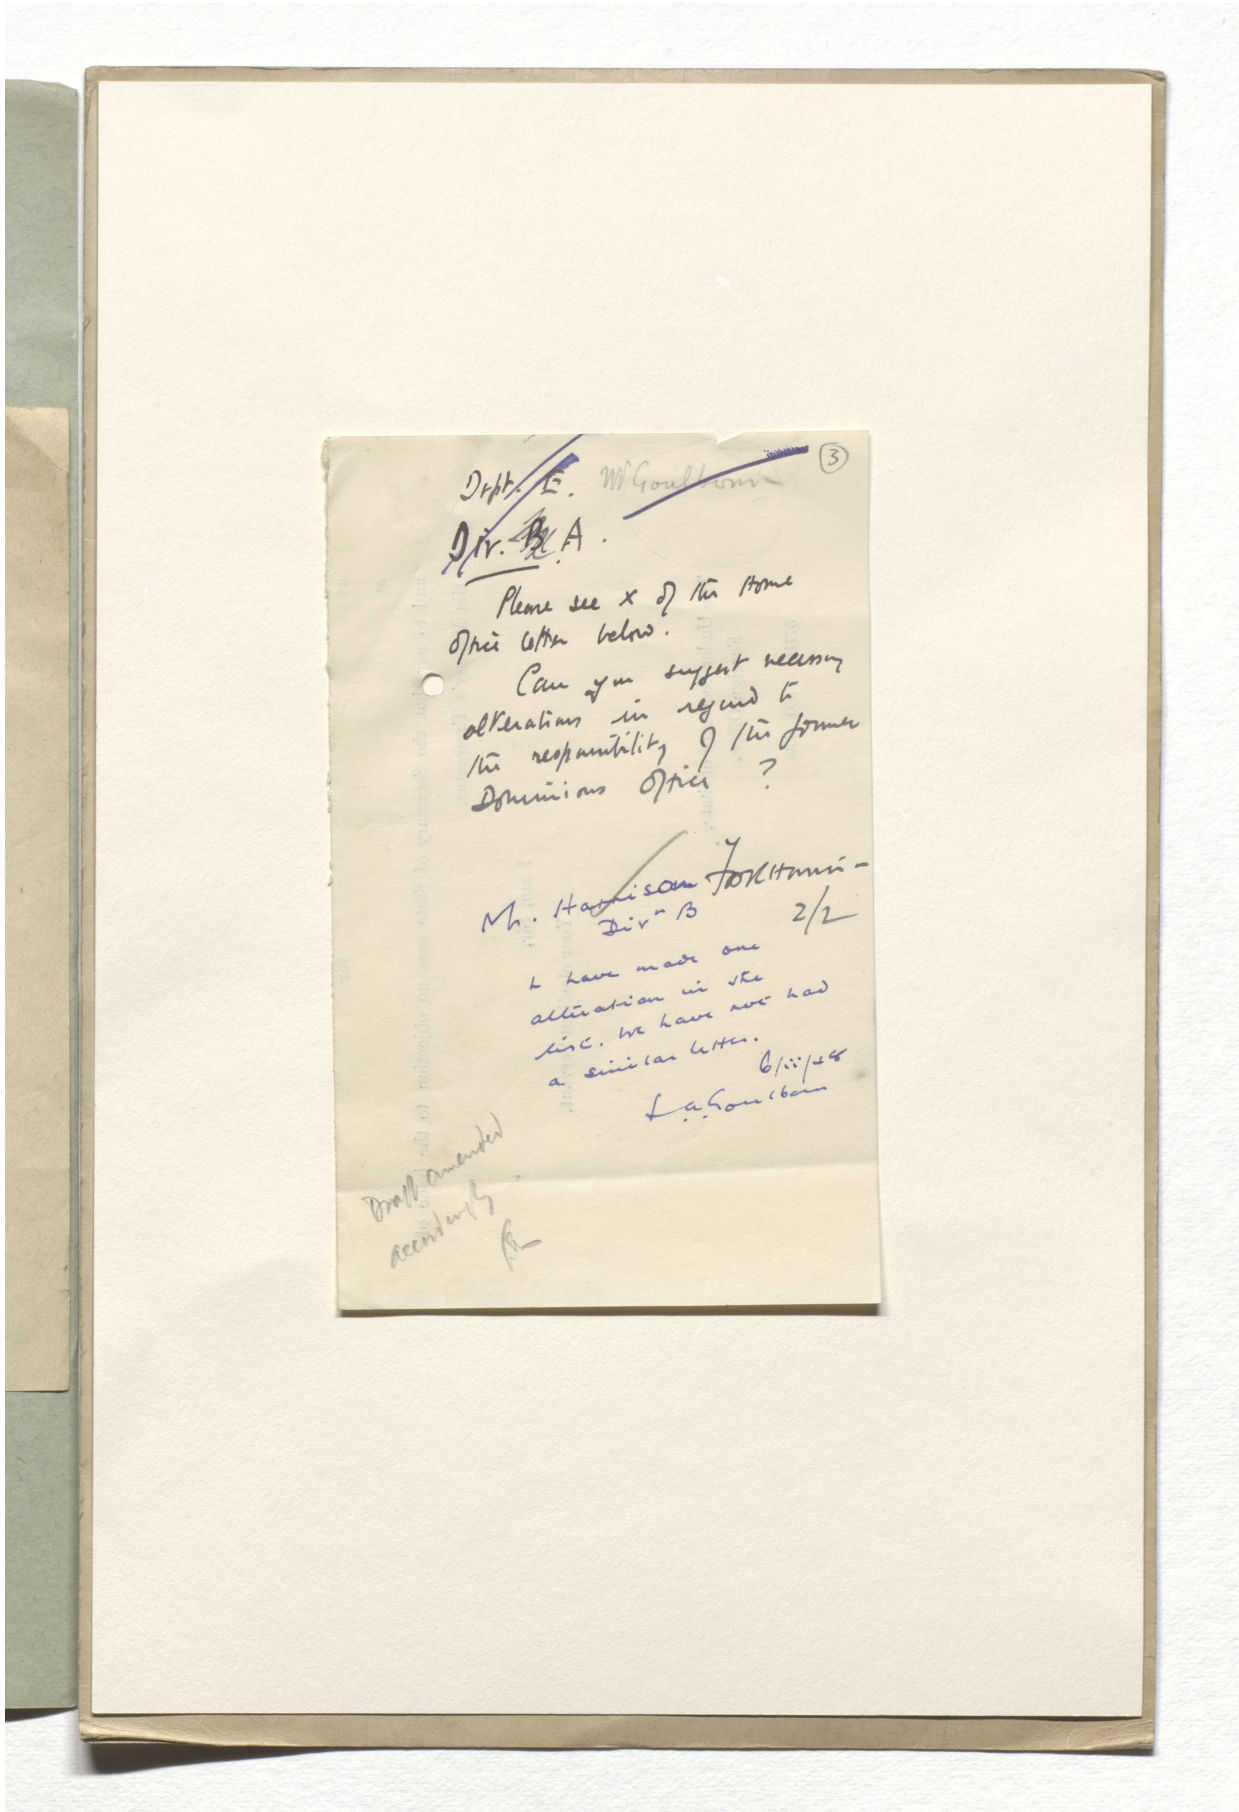 3
Dept. E. Mr Goulbourn
Div. B A.
Please see x of the Home
Office letter below.
Can you suggest necessary
alterations in regard to
the responsibility of the former
Dominions Office ?
Mr. Harrison
Divn B 2/2
I have made one
alteration in the
list. We have not had
a similar letter.
6/ii/48
L.A. Goulbourn
Draft amended
accordingly.